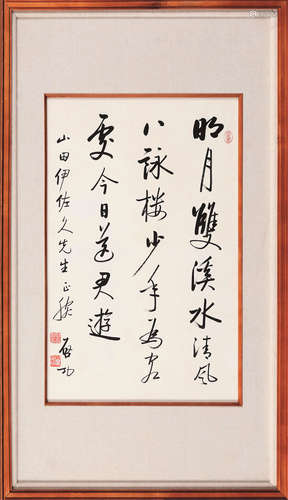 明月雙溪水清風
八詠楼少年為客
處今日送君遊
山田伊佐久先生正腕
啟功